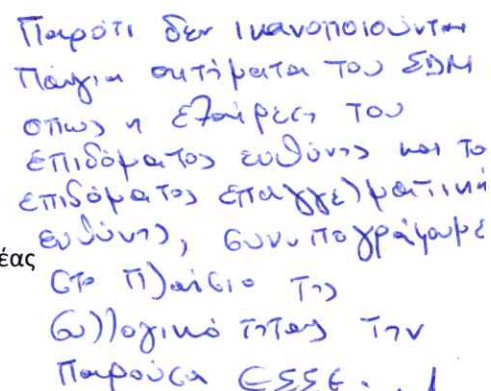 Παρότι δεν ικανοποιούνται
Πάγια αιτήματα του ΣΔΜ
οπως η εξαίρεση του
επιδόματος ευθύνης και το
επιδόματος επαγγελματική
ευθύνης, συνυπογράφουμε
έας
στο πλαίσιο της
συλλογικότητας την
παρούσα ΕΣΣΕ.